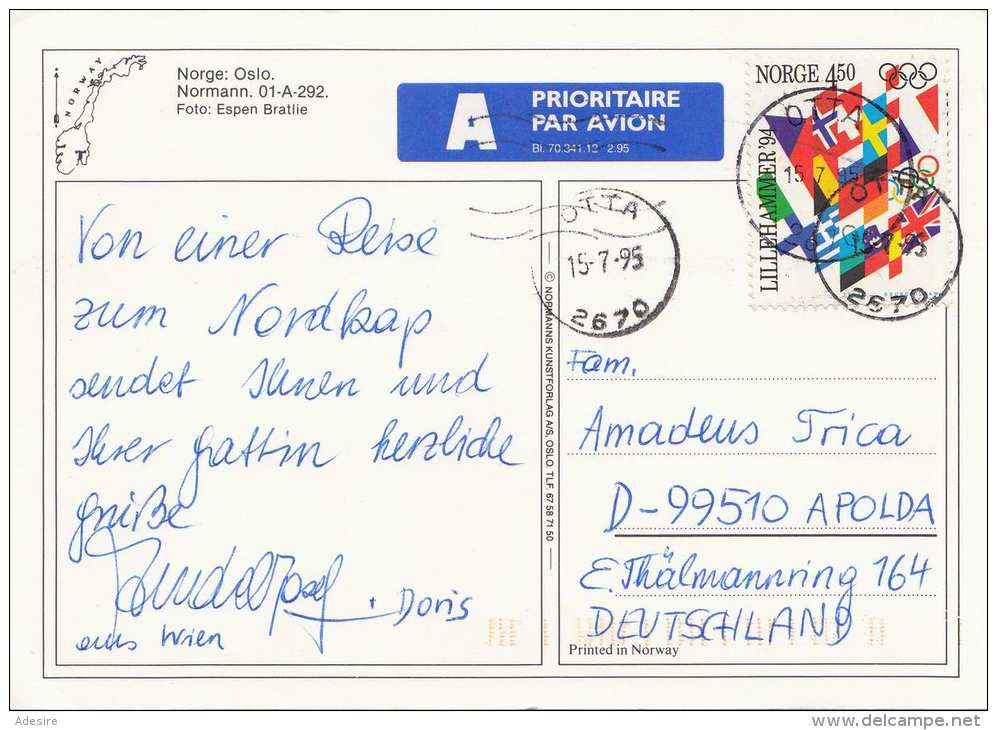 NORWAY
Norge: Oslo.
Normann. 01-A-292.
Foto: Espen Bratlie
A
PRIORITAIRE
PAR AVION
Bl. 70.341.12 2.95
NORGE 4.50
LILLEHAMMER '94
OTTA
15 7 95
OTTA
15-7-95
2670
OTTA
15-7-95
2670
Von einer Reise
zum Nordkap
sendet Ihnen und
Ihrer Gattin herzliche
Grüße
Josef + Doris
aus Wien
© NORMANNS KUNSTFORLAG A/S, OSLO. TLF. 67 58 71 50
Fam.
Amadeus Trica
D-99510 APOLDA
E. Thälmannring 164
DEUTSCHLAND
Printed in Norway
Adesire
delcampe.net